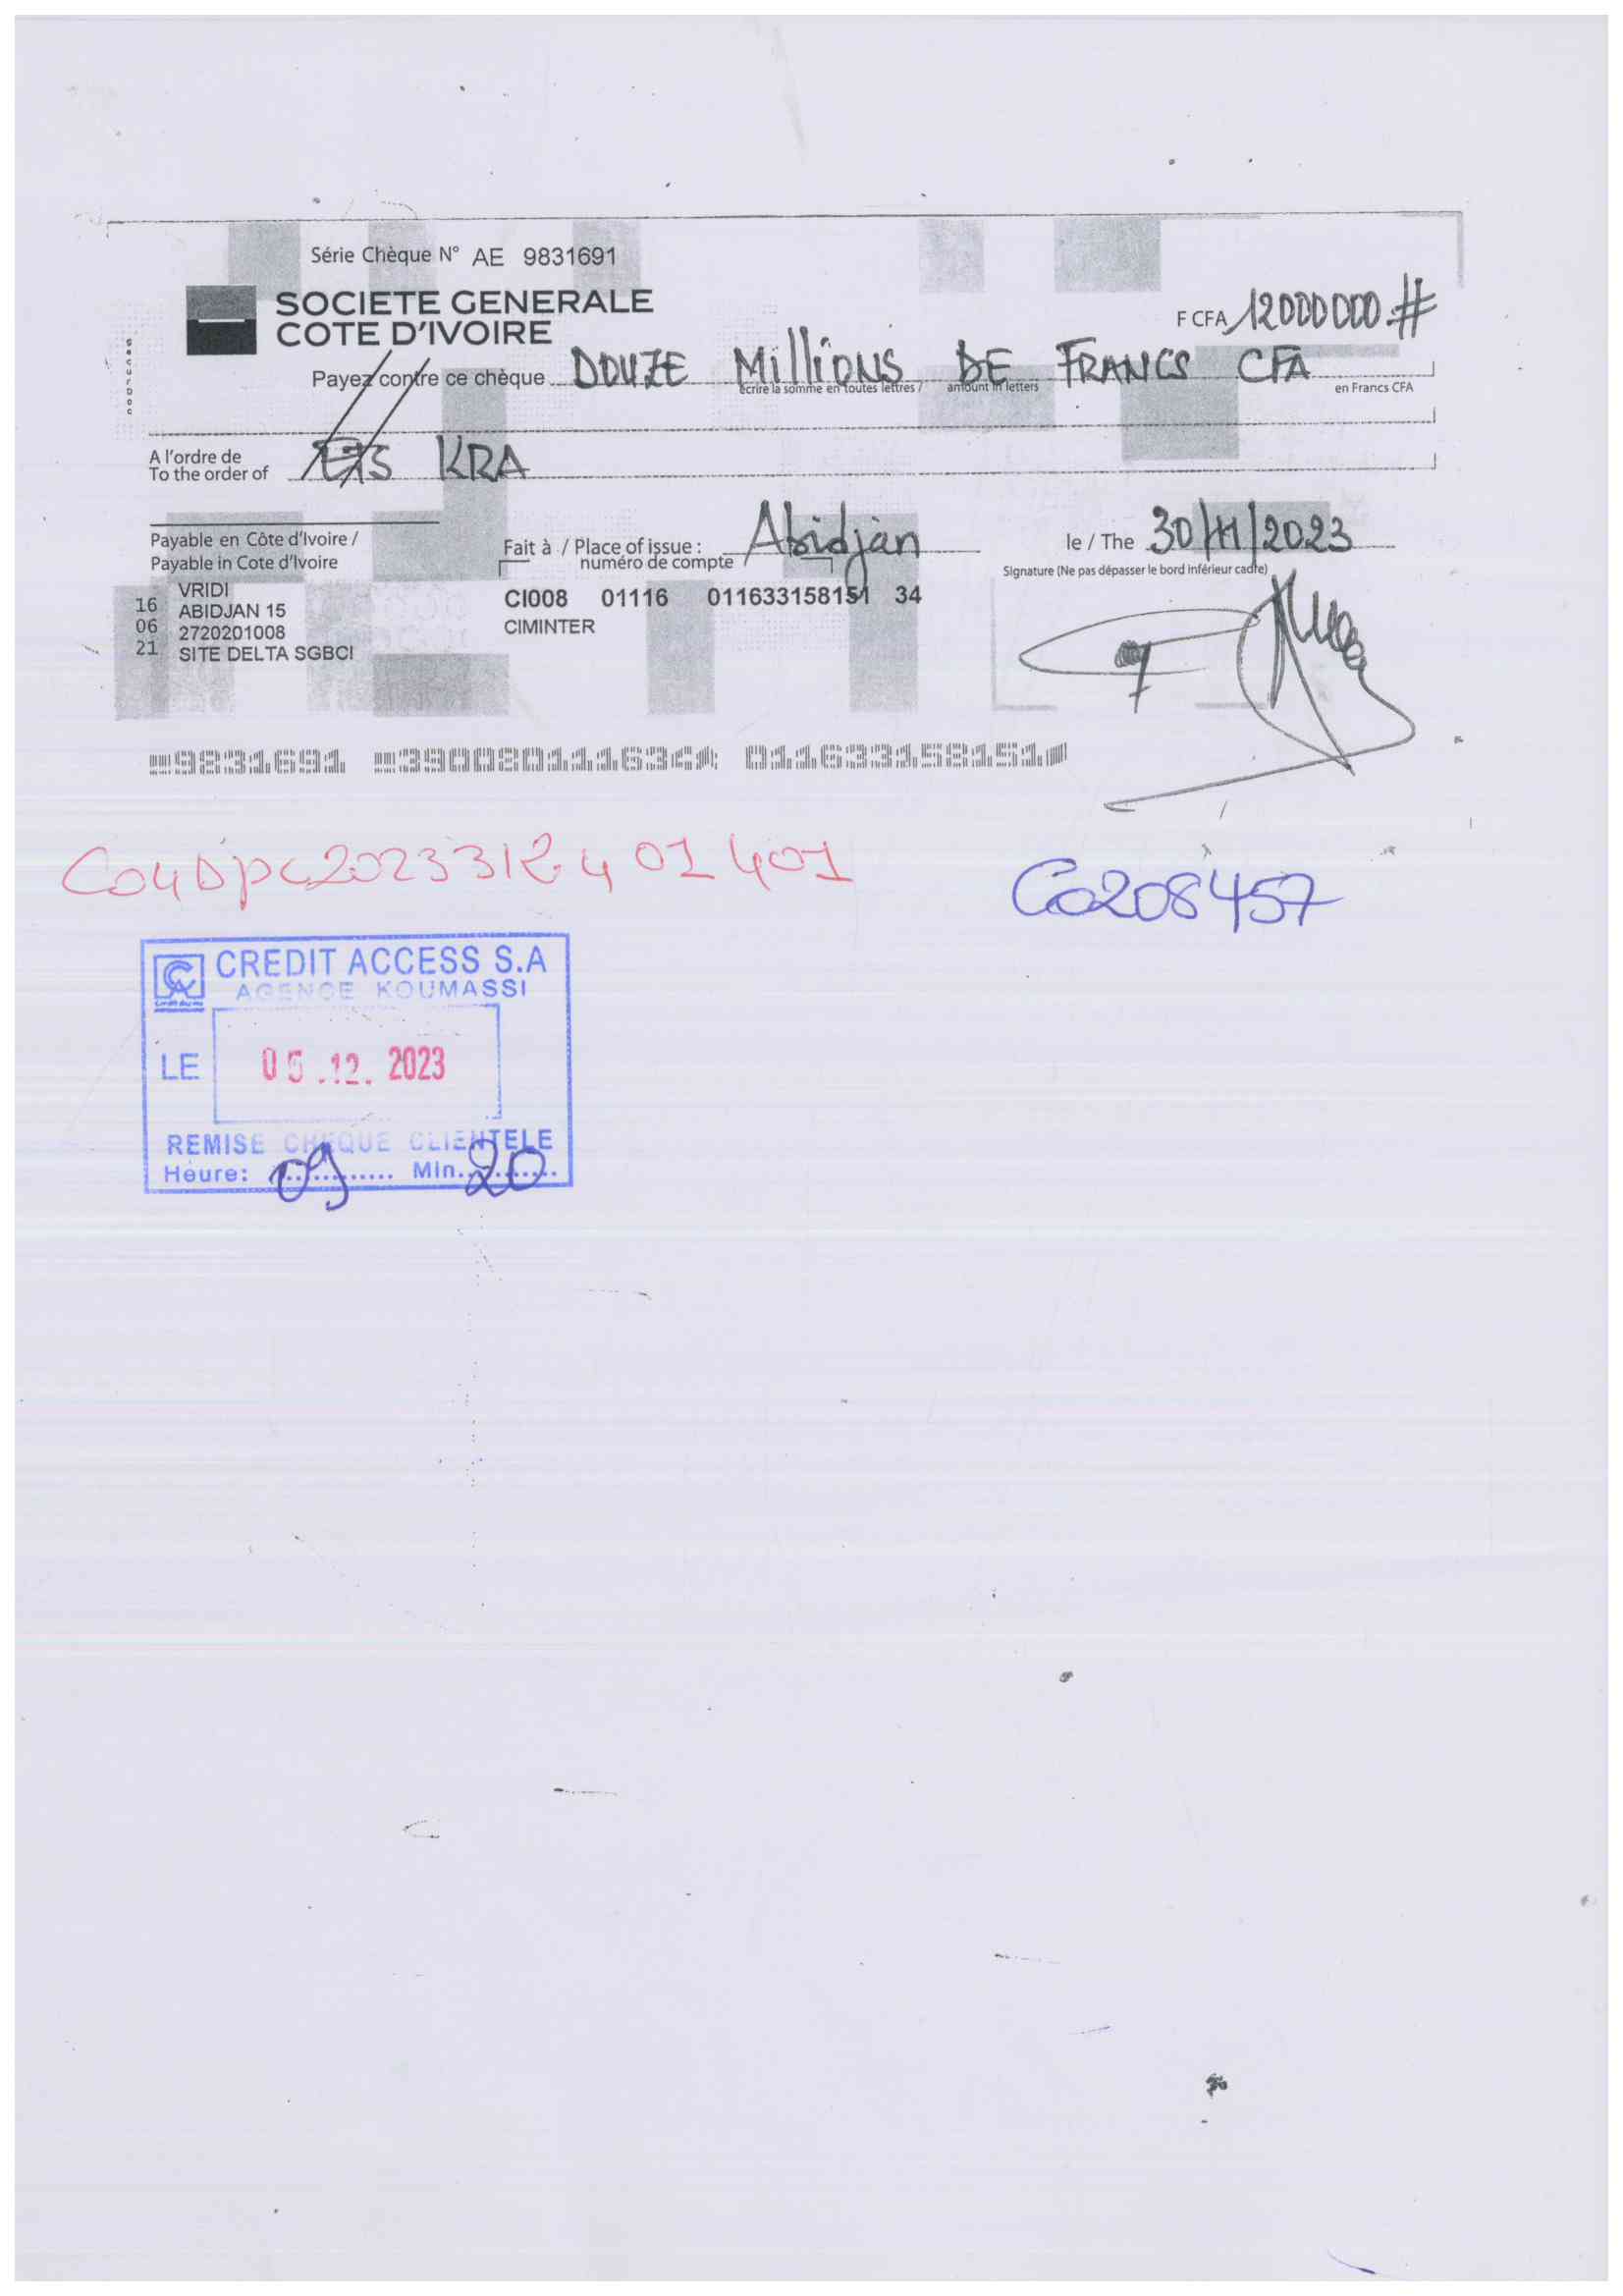 Série Chèque N° AE 9831691
SOCIETE GENERALE
COTE D'IVOIRE
F CFA 12000000 #
Payez contre ce chèque DOUZE MILLIONS DE FRANCS CFA
écrire la somme en toutes lettres / amount in letters
en Francs CFA
A l'ordre de
To the order of
ETS KRA
Payable en Côte d'Ivoire /
Payable in Cote d'Ivoire
Fait à / Place of issue : Abidjan
numéro de compte
le / The 30/11/2023
Signature (Ne pas dépasser le bord inférieur cadre)
VRIDI
16 ABIDJAN 15
06 2720201008
21 SITE DELTA SGBCI
CI008 01116 011633158151 34
CIMINTER
9831691 390080111634 011633158151
Co208457
CREDIT ACCESS S.A
AGENCE KOUMASSI
LE 05.12.2023
REMISE CHEQUE CLIENTELE
Heure: 09 Min. 20